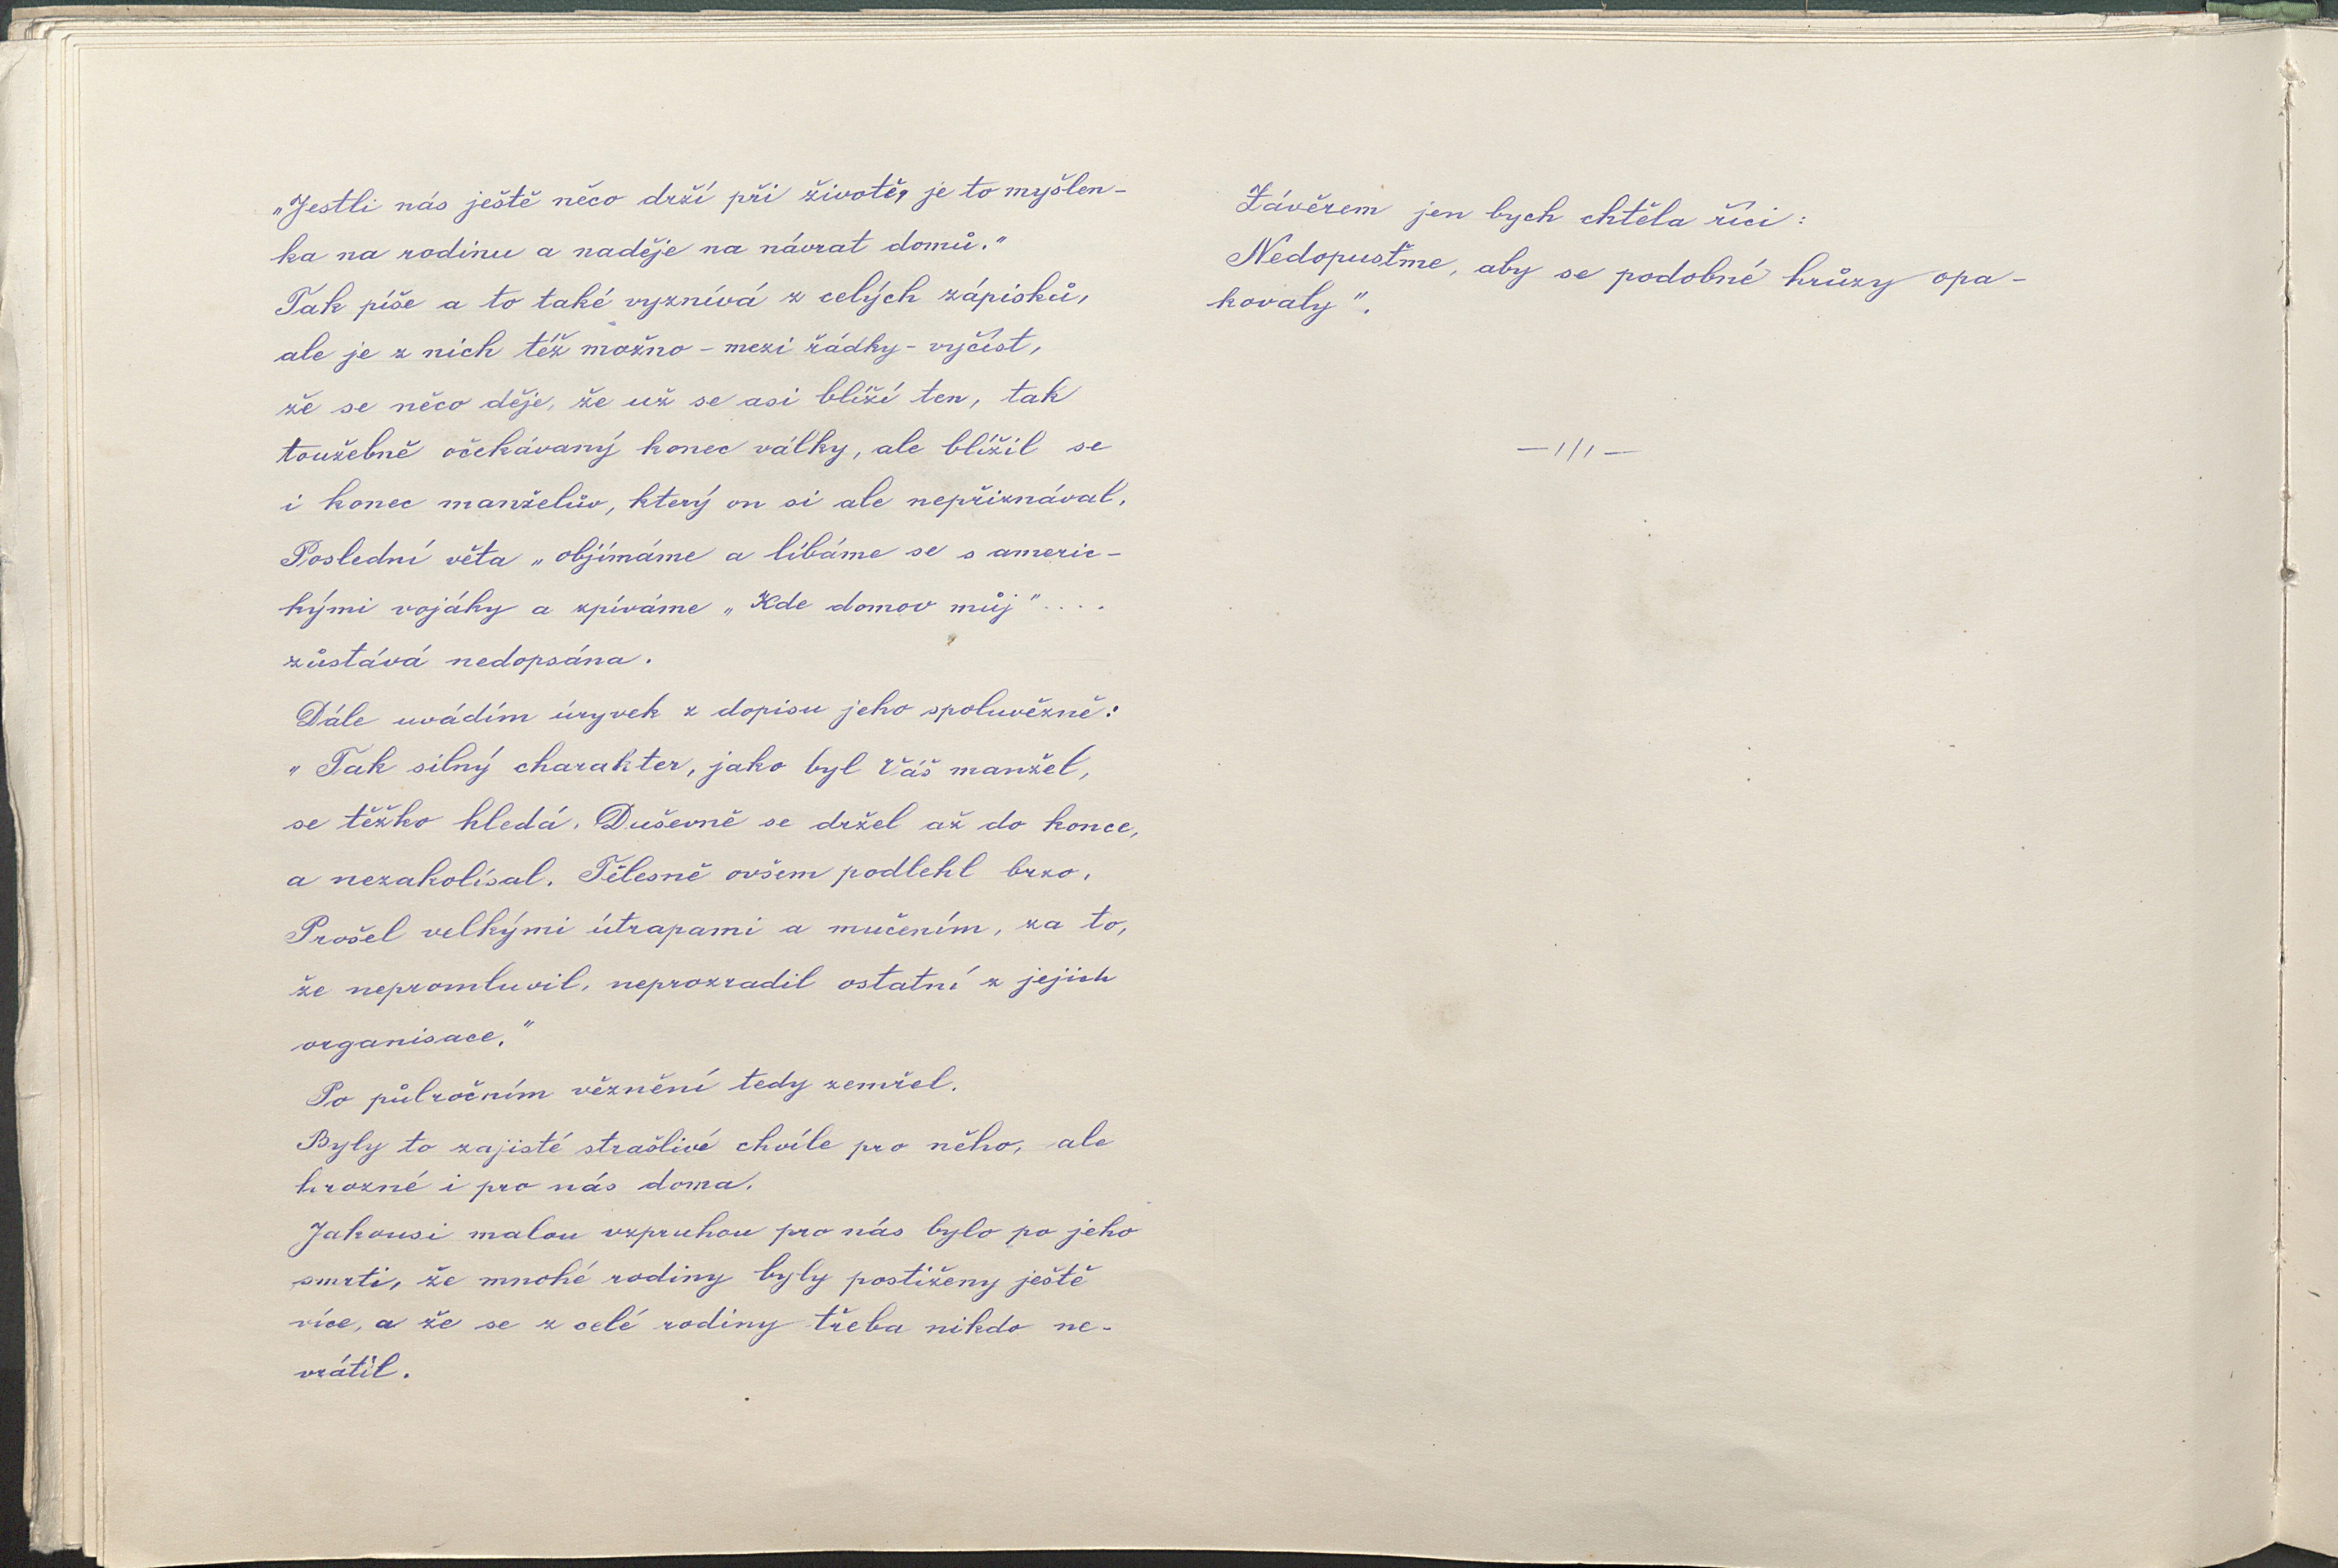 „Jestli nás ještě něco drží při životě, je to myšlen-
ka na rodinu a naděje na návrat domů."
Tak píše a to také vyznívá z celých zápisků,
ale je z nich též možno - mezi řádky - vyčíst,
že se něco děje, že už se asi blíží ten, tak
toužebně očekávaný konec války, ale blížil se
i konec manželův, který on si ale nepřiznával.
Poslední věta „objímáme a líbáme se s americ-
kými vojáky a zpíváme „Kde domov můj"....
zůstává nedopsána.
Dále uvádím úryvek z dopisu jeho spoluvězně:
„Tak silný charakter, jako byl Váš manžel,
se těžko hledá. Duševně se držel až do konce,
a nezakolísal. Tělesně ovšem podlehl brzo.
Prošel velkými útrapami a mučením, za to,
že nepromluvil, neprozradil ostatní z jejich
organisace."
Po půlročním věznění tedy zemřel.
Byly to zajisté strašlivé chvíle pro něho, ale
hrozné i pro nás doma.
Jakousi malou vzpruhou pro nás bylo po jeho
smrti, že mnohé rodiny byly postiženy ještě
více, a že se z celé rodiny třeba nikdo ne-
vrátil.
Závěrem jen bych chtěla říci:
Nedopusťme, aby se podobné hrůzy opa-
kovaly".
—1/1—